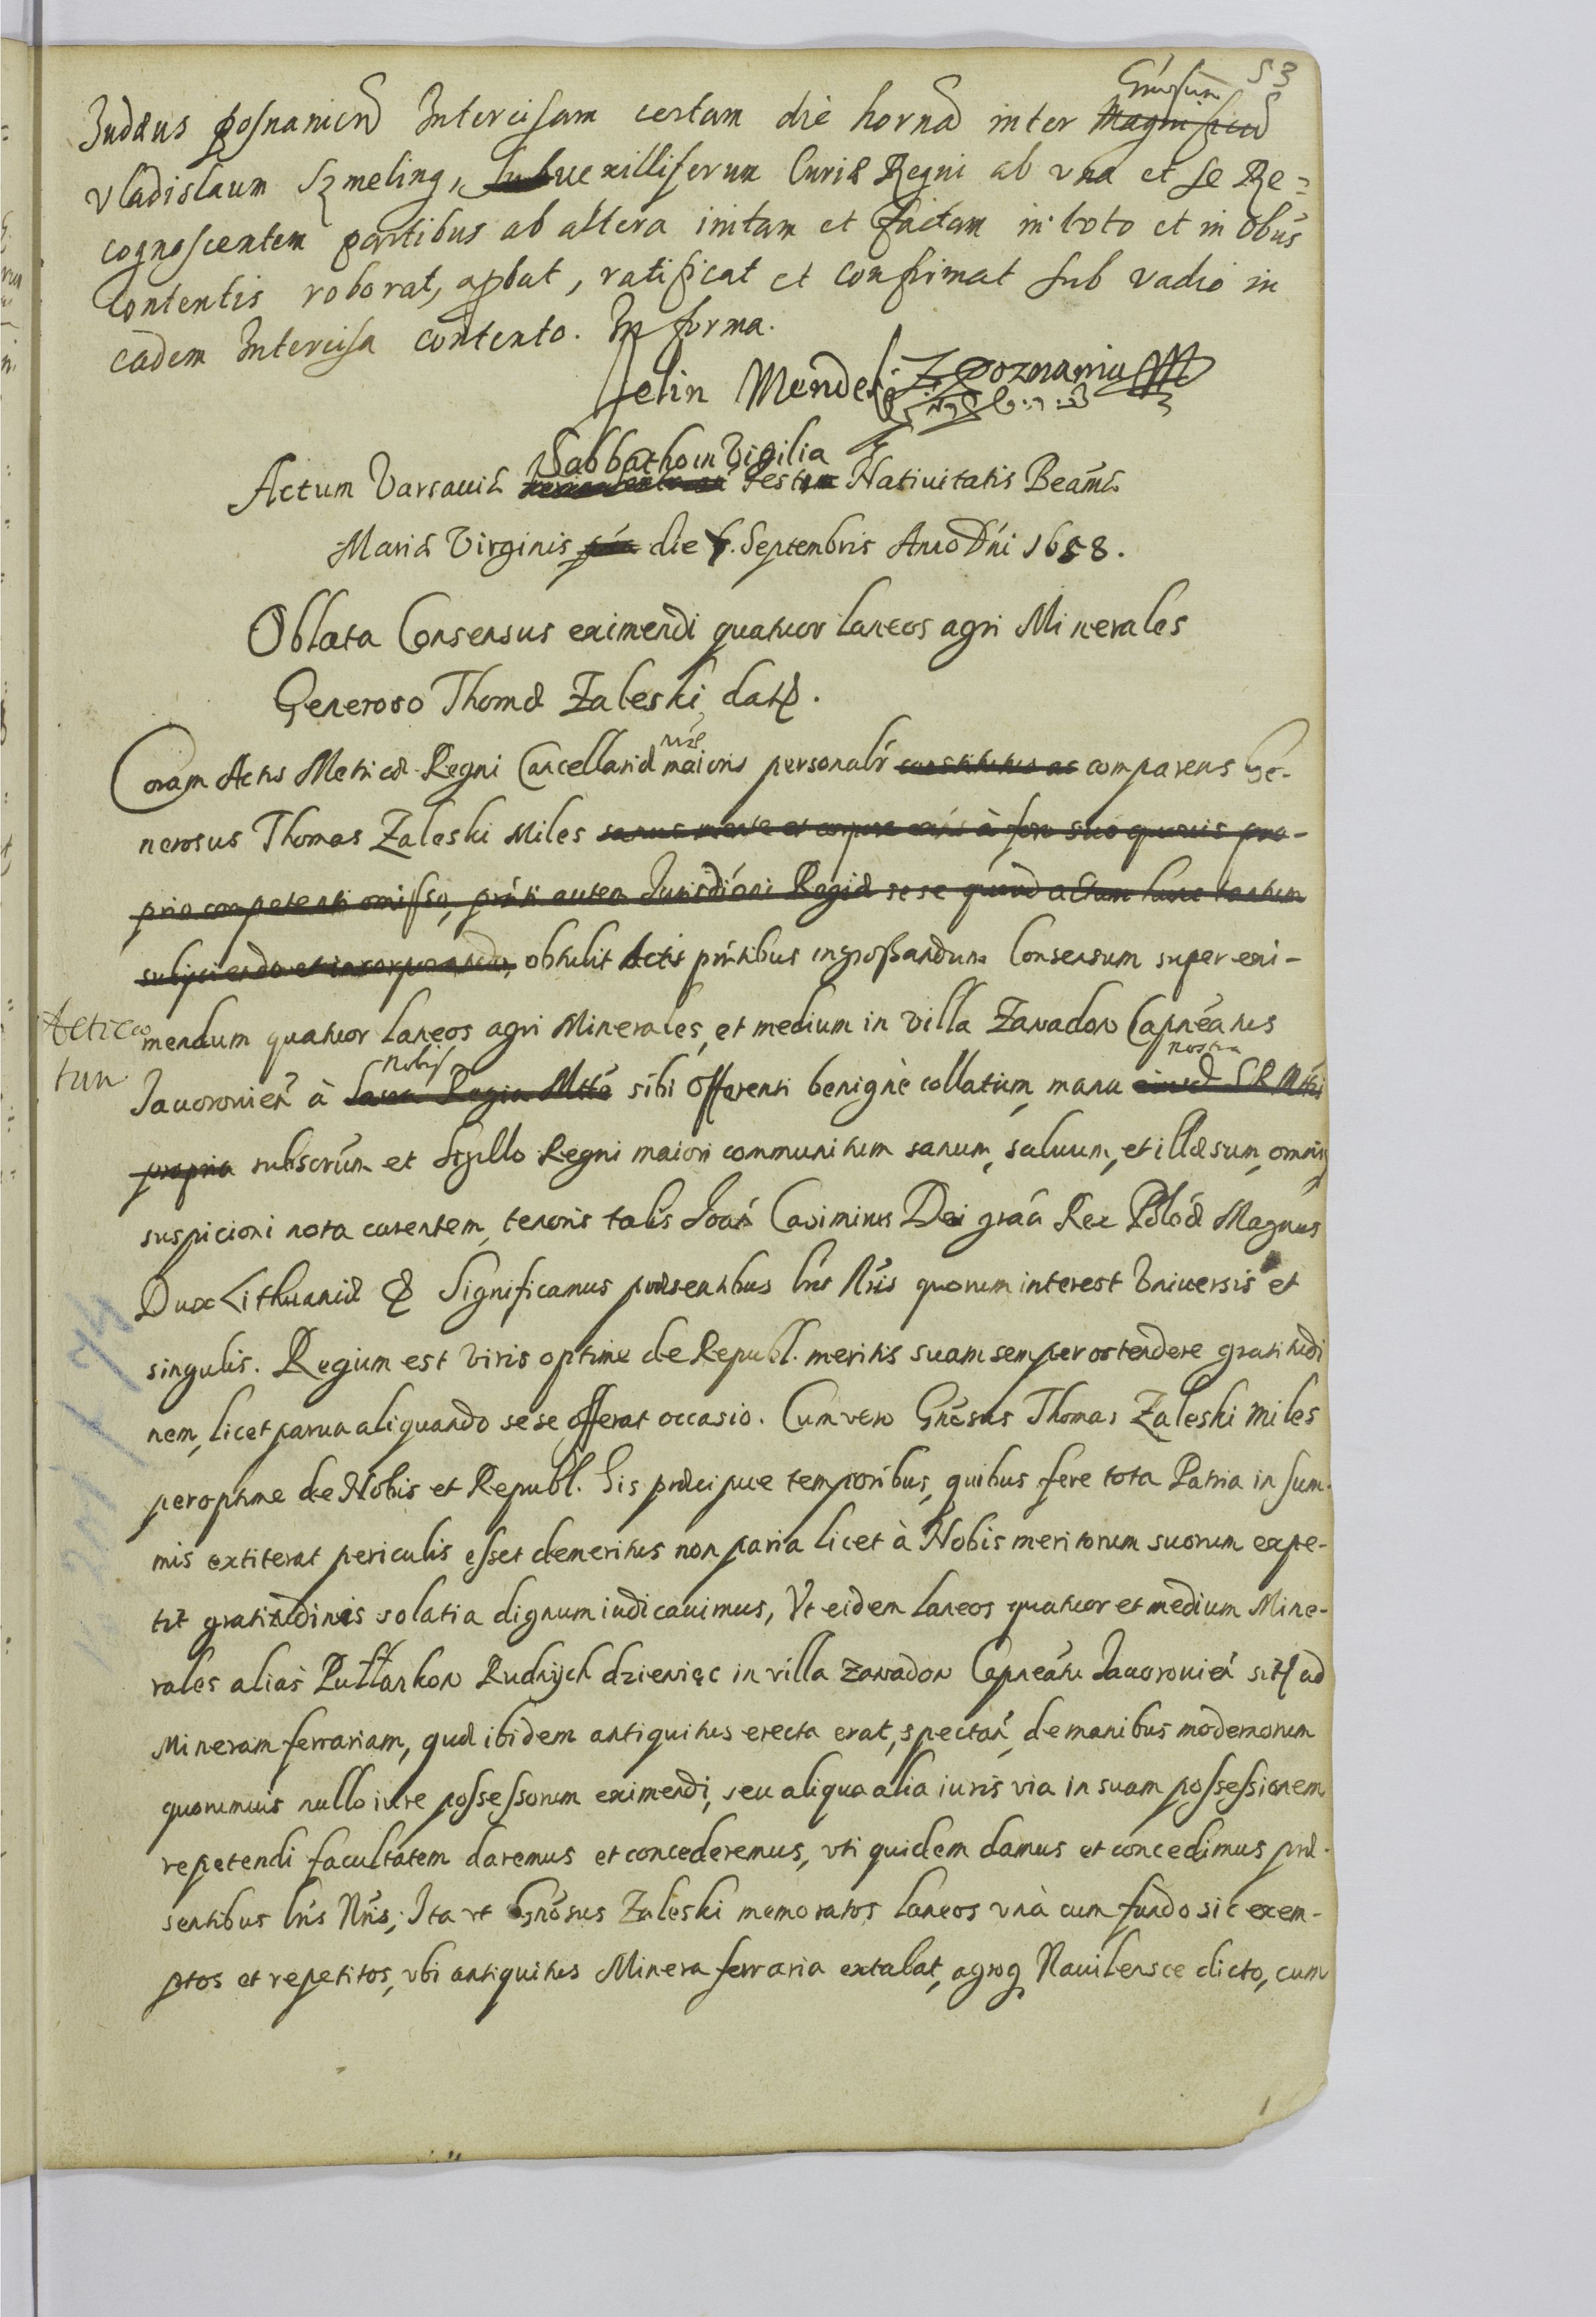 53
Gnrosum
Judæus posnanien Intercisam certam die horna inter Magnificu
Vladislaum Szmeling, Subuexilliferum Curiæ Regni ab vna et se Re=
cognoscentem partibus ab altera initam et factam in toto et in oĩbus
contentis roborat, apbat, ratificat et confirmat sub vadio in
eadem Intercisa contento. In forma.
Selin Mendel Z Poznania
Sabbatho in Vigilia
Actum Varsauiæ Festum Natiuitatis Beãmæ
Mariæ Virginis die 7. Septembris Anno Dńi 1658.
Oblata Consensus eximendi quatuor laneos agri Minerales
Generoso Thomæ Zaleski dat.
nræ
Coram Actis Metricæ Regni Cancellariæ maioris personalr constitutus ac comparens Ge-
nerosus Thomas Zaleski Miles sanus mente et corpore exńs à foro suo quouis pro-
prio competenti omisso, prńti autem Jurisdiõni Regiæ sese quoad actum hunc tantum
subijciendo et incorporando, obtulit Actis prńtibus ingrossandum Consensum super exi-
mendum quatuor laneos agri Minerales, et medium in villa Zawadow Capneatus
nobis
nostra
Jauorouień à Sacra Regia Mtte sibi Offerenti benignè collatum, manu eiusd SRMttis
propria subscrům et Sigillo Regni maiori communitum sanum, saluum, et illæsum, omniq
suspicioni nota carentem, tenoris talis Joań Casimirus Dei gráa Rex Poloæ Magnus
Dux Lithuaniæ & Significamus præsentibus lris Nris quorum interest Vniuersis et
singulis. Regium est viris optime de Republ. meritis suam semper ostendere gratitudi
nem, licet parua aliquando sese offerat occasio. Cum vero Gnrosus Thomas Zaleski Miles
peroptime de Nobis et Republ. his præcipue temporibus, quibus fere tota Patria in sum-
mis extiterat periculis esset demeritus non paria licet à Nobis meritorum suorum expe-
tit gratitudinis solatia dignum iudicauimus, Vt eidem laneos quatuor et medium Mine-
rales alias Pułłankow Rudnych dziewięc in villa Zawadow Capneatu Jauorouień sit ad
Mineram ferrariam, quæ ibidem antiquitus erecta erat, spectań, de manibus modernorum
quorumuis nullo iure possessorum eximendi, seu aliqua alia iuris via in suam possessionem
repetendi facultatem daremus et concederemus, vti quidem damus et concedimus præ-
sentibus lris Nris, Ita vt Gnrosus Zaleski memoratos laneos vnà cum fundo sic exem-
ptos et repetitos, vbi antiquitus Minera ferraria extabat, agroq Nauilensce dicto, cum